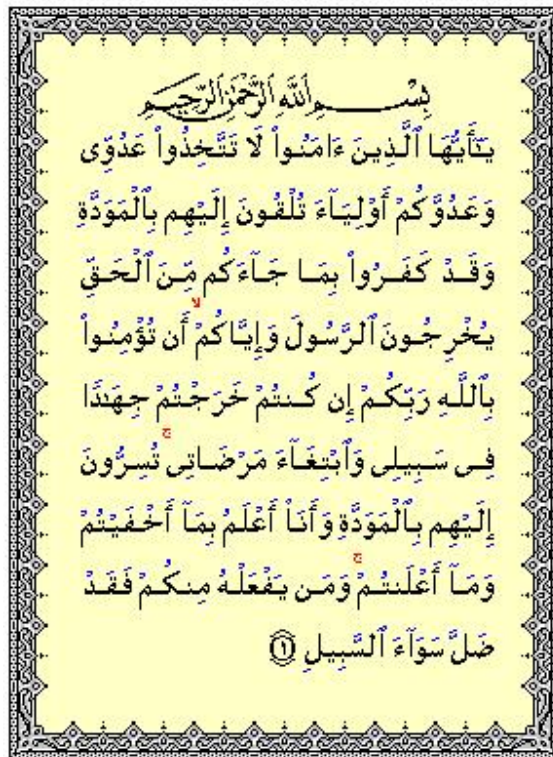 بِسْمِ ٱللَّهِ ٱلرَّحْمَٰنِ ٱلرَّحِيمِ
يَـٰٓأَيُّهَا ٱلَّذِينَ ءَامَنُوا۟ لَا تَتَّخِذُوا۟ عَدُوِّى
وَعَدُوَّكُمْ أَوْلِيَآءَ تُلْقُونَ إِلَيْهِم بِٱلْمَوَدَّةِ
وَقَدْ كَفَرُوا۟ بِمَا جَآءَكُم مِّنَ ٱلْحَقِّ
يُخْرِجُونَ ٱلرَّسُولَ وَإِيَّاكُمْ ۙ أَن تُؤْمِنُوا۟
بِٱللَّهِ رَبِّكُمْ إِن كُنتُمْ خَرَجْتُمْ جِهَـٰدًا
فِى سَبِيلِى وَٱبْتِغَآءَ مَرْضَاتِى ۚ تُسِرُّونَ
إِلَيْهِم بِٱلْمَوَدَّةِ وَأَنَا۠ أَعْلَمُ بِمَآ أَخْفَيْتُمْ
وَمَآ أَعْلَنتُمْ ۚ وَمَن يَفْعَلْهُ مِنكُمْ فَقَدْ
ضَلَّ سَوَآءَ ٱلسَّبِيلِ ﴿١﴾